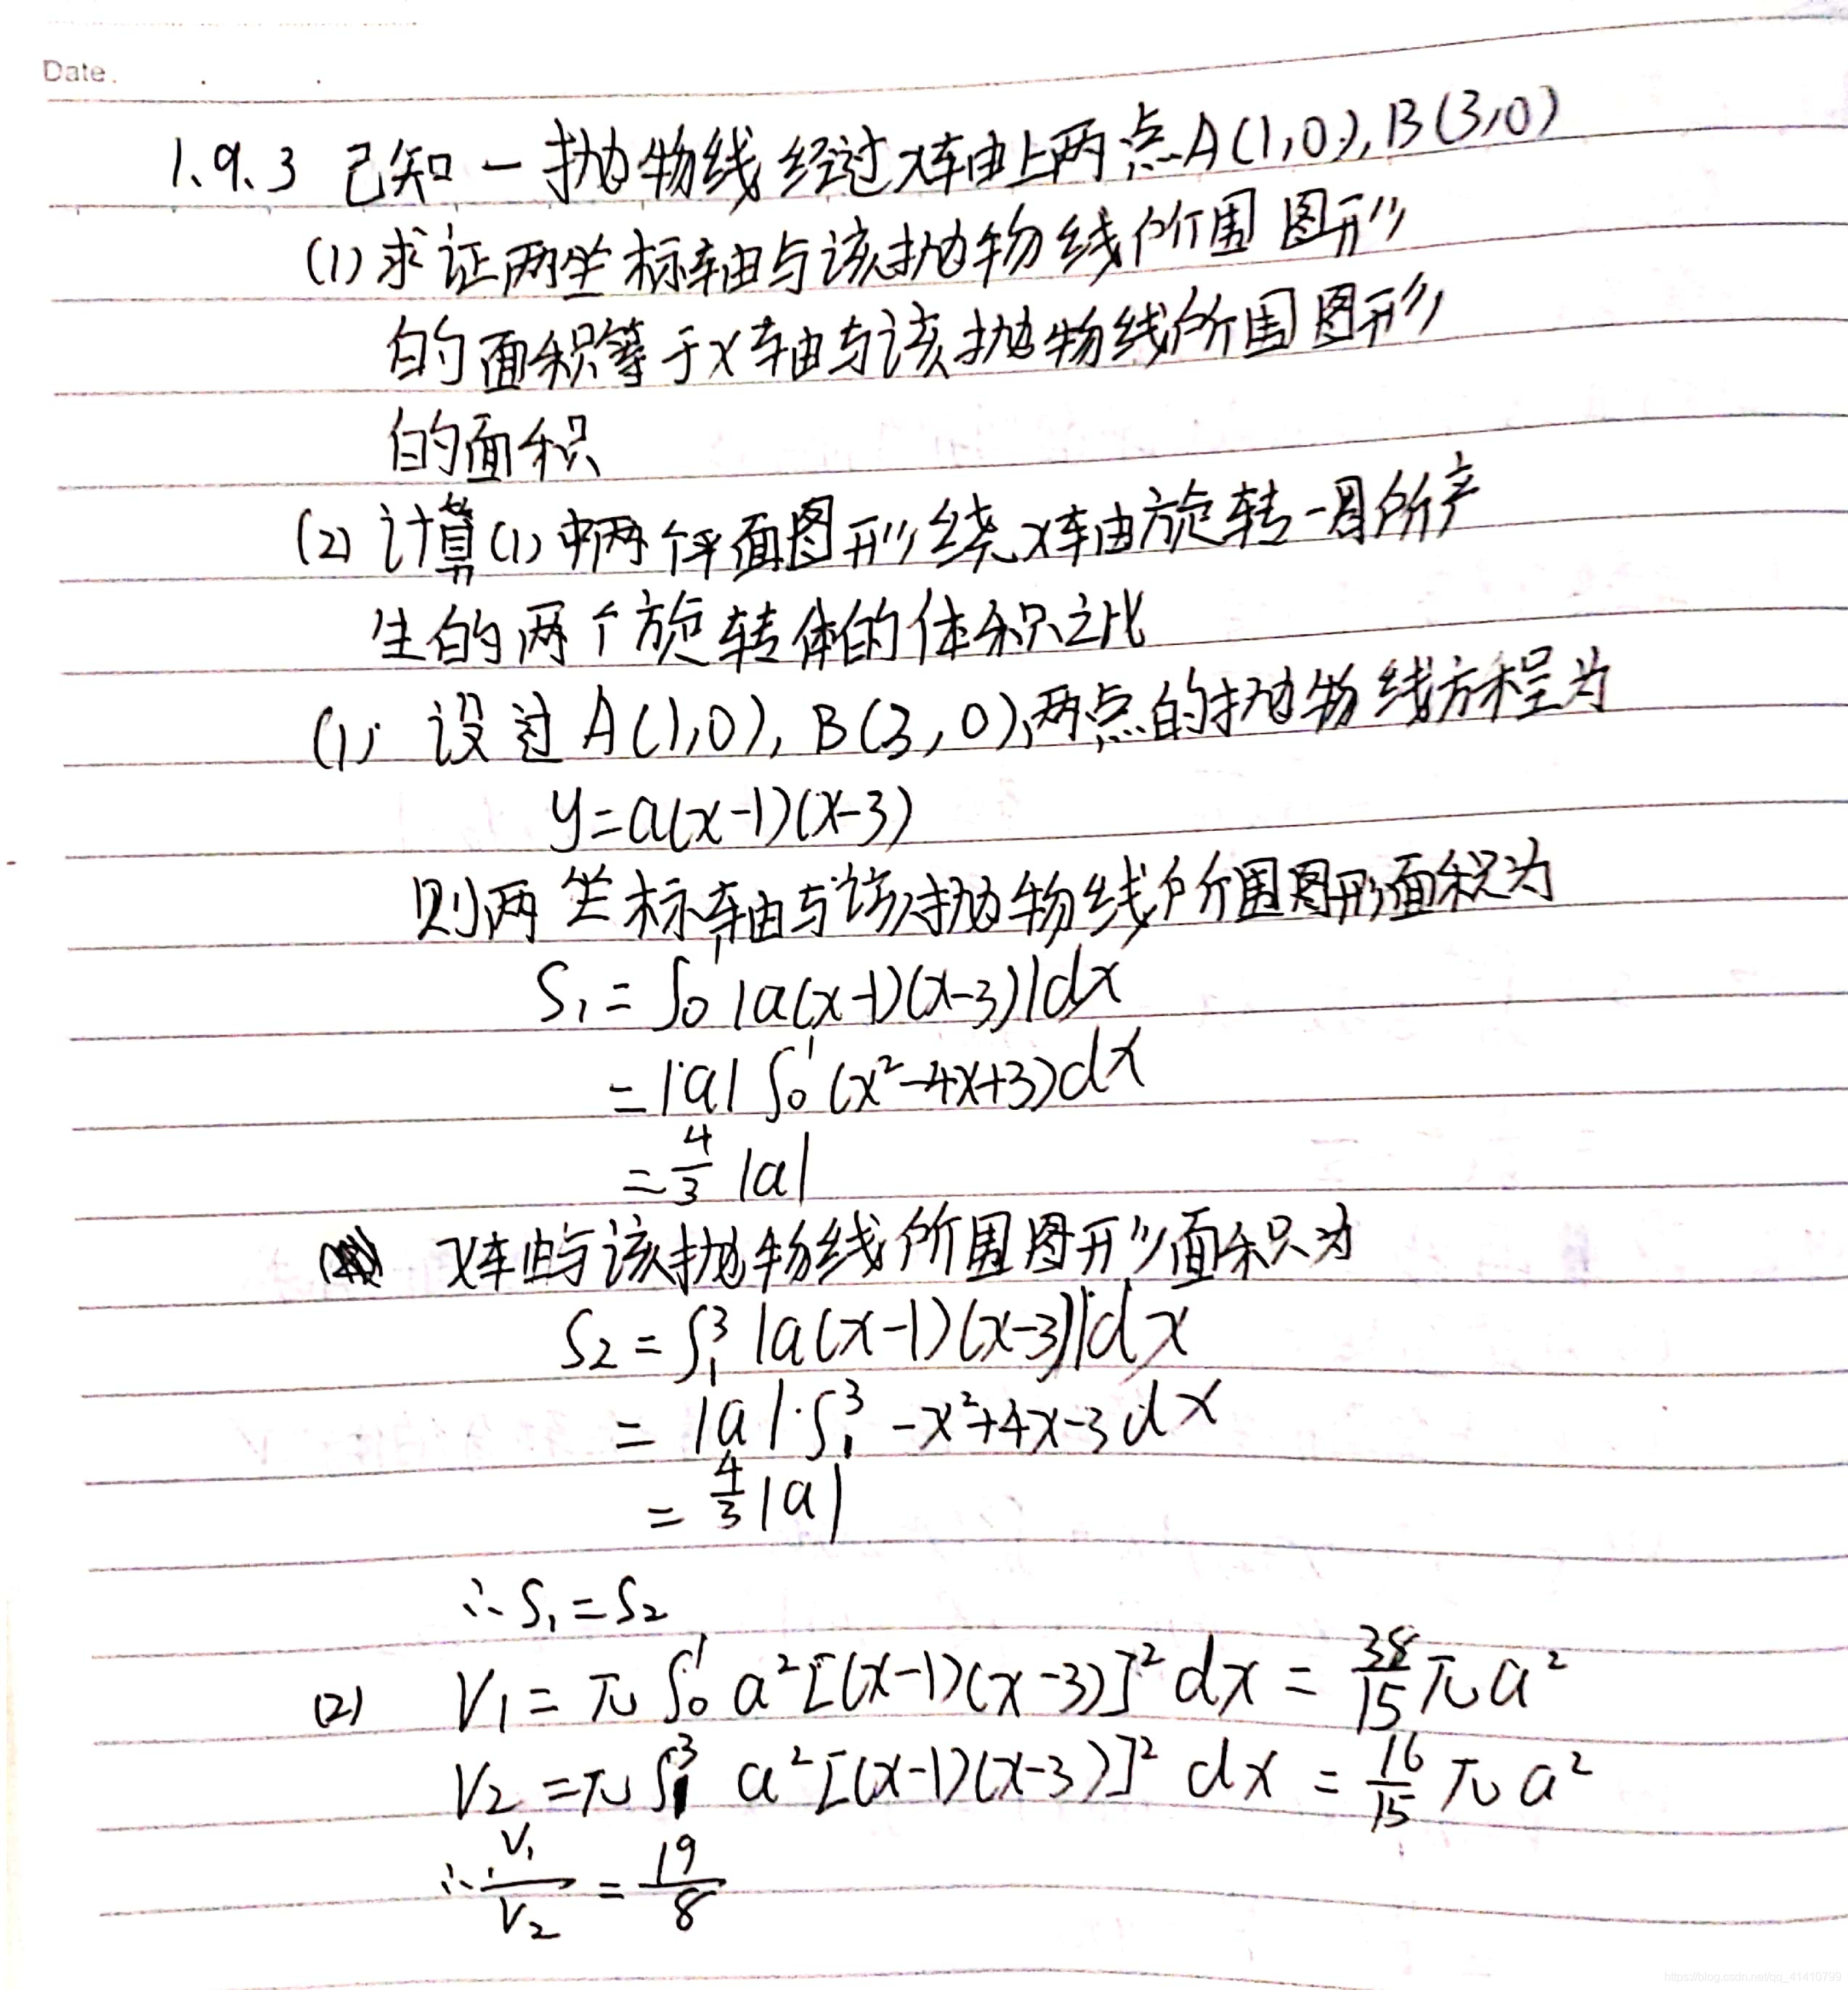 Date.
1.9.3 已知一抛物线经过x轴上两点A(1,0),B(3,0)
(1)求证两坐标轴与该抛物线所围图形
的面积等于x轴与该抛物线所围图形
的面积
(2)计算(1)中两个平面图形绕x轴旋转一周所产
生的两个旋转体的体积之比
(1) 设过A(1,0),B(3,0)两点的抛物线方程为
y=a(x-1)(x-3)
则两坐标轴与该抛物线所围图形面积为
S₁=∫₀¹|a(x-1)(x-3)|dx
=|a|∫₀¹(x²-4x+3)dx
=4/3|a|
x轴与该抛物线所围图形面积为
S₂=∫₁³|a(x-1)(x-3)|dx
=|a|·∫₁³-x²+4x-3dx
=4/3|a|
∴S₁=S₂
(2) V₁=π∫₀¹a²[(x-1)(x-3)]²dx=38/15πa²
V₂=π∫₁³a²[(x-1)(x-3)]²dx=16/15πa²
∴V₁/V₂=19/8
https://blog.csdn.net/qq_41410799